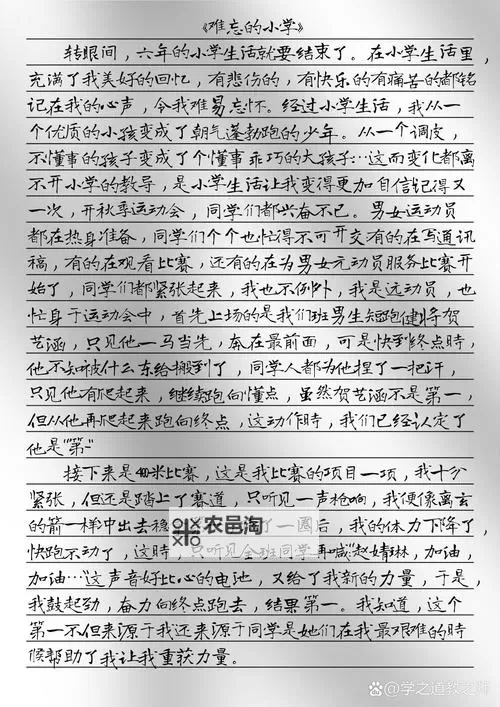 《难忘的小学》
转眼间，六年的小学生活就要结束了。在小学生活里，
充满了我美好的回忆，有悲伤的，有快乐的有痛苦的都铭
记在我的心声，令我难易忘怀。经过小学生活，我从一
个优质的小孩变成了朝气蓬勃跑的少年。从一个调皮，
不懂事的孩子变成了个懂事乖巧的大孩子…这而变化都离
不开小学的教导，是小学生活让我变得更加自信记得又
一次，开秋季运动会，同学们都兴奋不已。男女运动员
都在热身准备，同学们个个也忙得不可开交有的在写通讯
稿，有的在观看比赛，还有的在为男女元动员服务比赛开
始了，同学们都紧张起来，我也不例外，我是远动员，也
忙身于运动会中，首先上场的是我们班男生短跑健将贺
艺涵，只见他一马当先，奔在最前面，可是快到终点時，
他不知被什么东给搬到了，同学人都为他捏了一把汗，
只见他有爬起来，继续跑向懂点，虽然贺艺涵不是第一，
但从他再爬起来跑向终点，这动作時，我们已经认定了
他是"第一"
接下来是400米比赛，这是我比赛的项目一项，我十分
紧张，但还是踏上了赛道，只听见一声枪响，我便像离玄
的箭一样中出去稳 了一圈后，我的体力下降了，
快跑不动了，这時，只听见全班同学再喊"赵婧琳，加油，
加油…"这声音好比心的电池，又给了我新的力量，于是，
我鼓起劲，奋力向终点跑去，结果第一。我知道，这个
第一不但来源于我还来源于同学是她们在我最艰难的時
候帮助了我让我重获力量。
农邑淘
学之道教之师